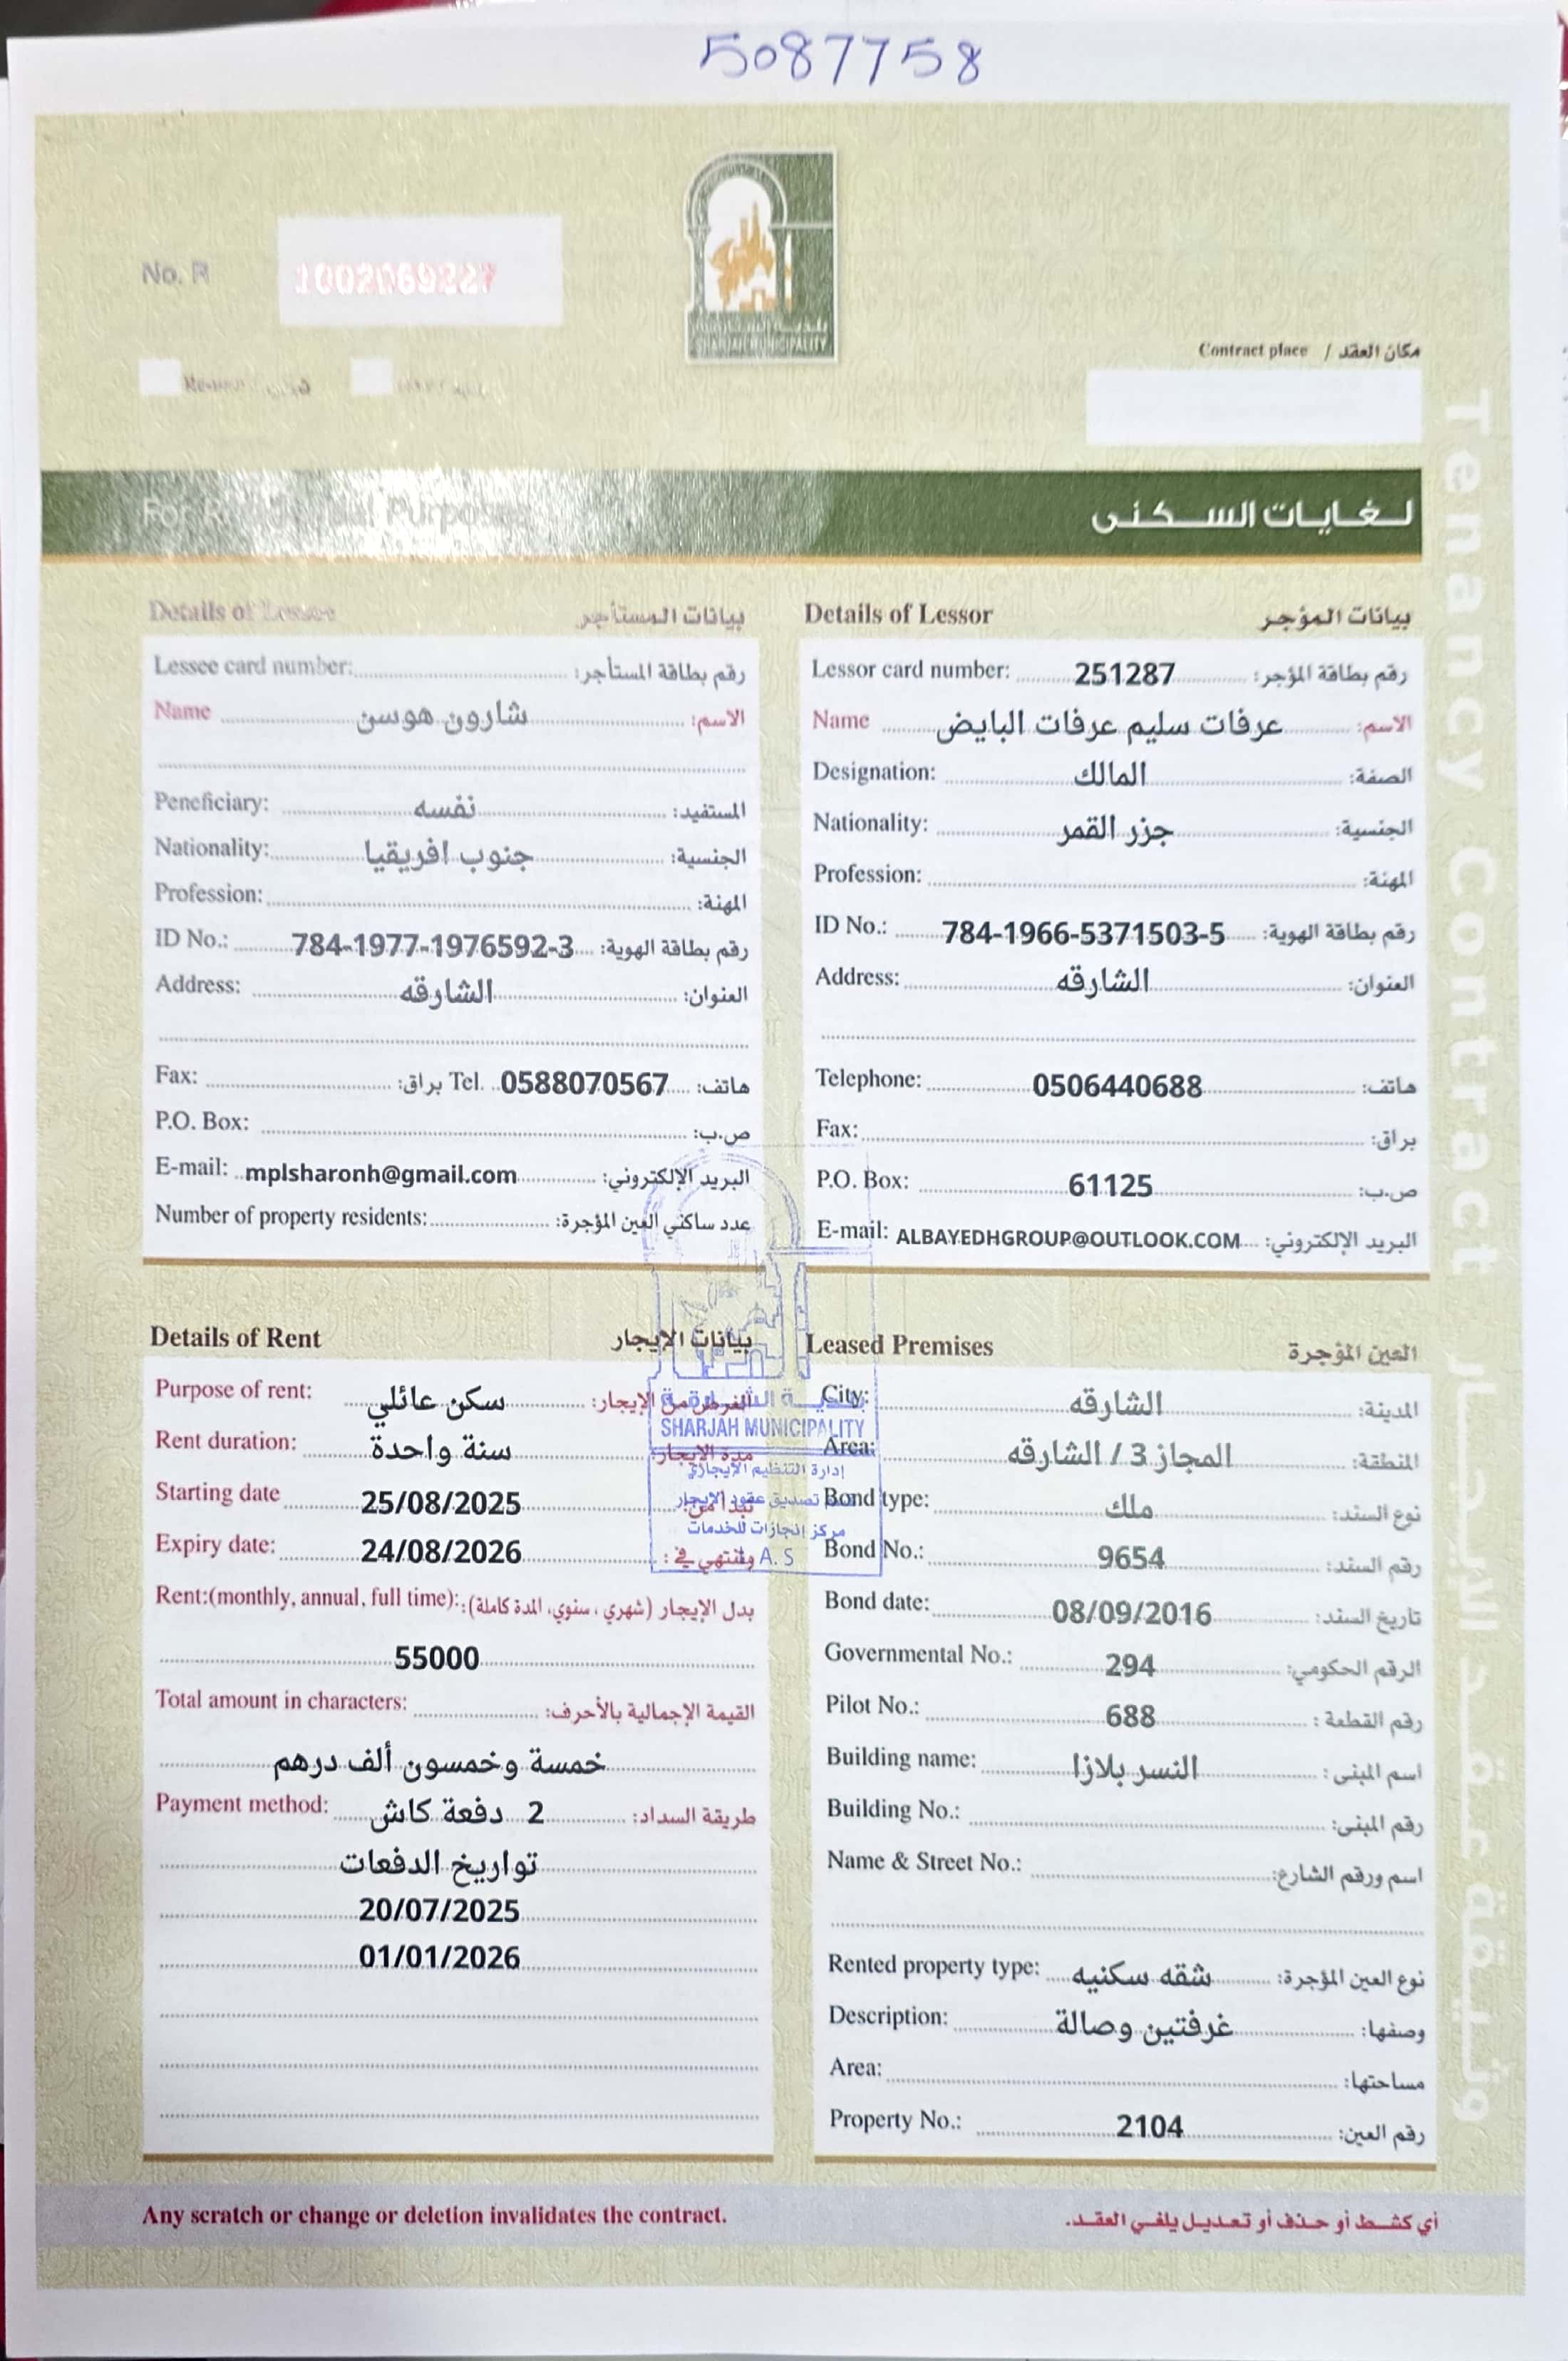 5087758
No. R 1002069227
SHARJAH MUNICIPALITY
Contract place / مكان العقد
For Residential Purposes لغايات السكنى
Tenancy Contract وثيقة عقد الإيجار
Details of Lessee بيانات المستأجر
Lessee card number: رقم بطاقة المستأجر:
Name شارون هوسن الاسم:
Peneficiary: نفسه المستفيد:
Nationality: جنوب افريقيا الجنسية:
Profession: المهنة:
ID No.: 784-1977-1976592-3 رقم بطاقة الهوية:
Address: الشارقه العنوان:
Fax: براق: Tel. 0588070567 هاتف:
P.O. Box: ص.ب:
E-mail: mplsharonh@gmail.com البريد الإلكتروني:
Number of property residents: عدد ساكني العين المؤجرة:
Details of Lessor بيانات المؤجر
Lessor card number: 251287 رقم بطاقة المؤجر:
Name عرفات سليم عرفات البايض الاسم:
Designation: المالك الصفة:
Nationality: جزر القمر الجنسية:
Profession: المهنة:
ID No.: 784-1966-5371503-5 رقم بطاقة الهوية:
Address: الشارقه العنوان:
Telephone: 0506440688 هاتف:
Fax: براق:
P.O. Box: 61125 ص.ب:
E-mail: ALBAYEDHGROUP@OUTLOOK.COM البريد الإلكتروني:
Details of Rent بيانات الإيجار
Purpose of rent: سكن عائلي الغرض من الإيجار:
Rent duration: سنة واحدة مدة الإيجار:
Starting date 25/08/2025 تبدأ من:
Expiry date: 24/08/2026 وتنتهي في:
Rent:(monthly, annual, full time): بدل الإيجار (شهري ، سنوي، المدة كاملة):
55000
Total amount in characters: القيمة الإجمالية بالأحرف:
خمسة وخمسون ألف درهم
Payment method: 2 دفعة كاش طريقة السداد:
تواريخ الدفعات
20/07/2025
01/01/2026
SHARJAH MUNICIPALITY
إدارة التنظيم الإيجاري
تصديق عقود الإيجار
مركز إنجازات للخدمات
A. S
Leased Premises العين المؤجرة
City: الشارقه المدينة:
Area: المجاز 3 / الشارقه المنطقة:
Bond type: ملك نوع السند:
Bond No.: 9654 رقم السند:
Bond date: 08/09/2016 تاريخ السند:
Governmental No.: 294 الرقم الحكومي:
Pilot No.: 688 رقم القطعة :
Building name: النسر بلازا اسم المبنى :
Building No.: رقم المبنى:
Name & Street No.: اسم ورقم الشارع:
Rented property type: شقه سكنيه نوع العين المؤجرة:
Description: غرفتين وصالة وصفها:
Area: مساحتها:
Property No.: 2104 رقم العين:
Any scratch or change or deletion invalidates the contract. أي كشط أو حذف أو تعديل يلغي العقد.